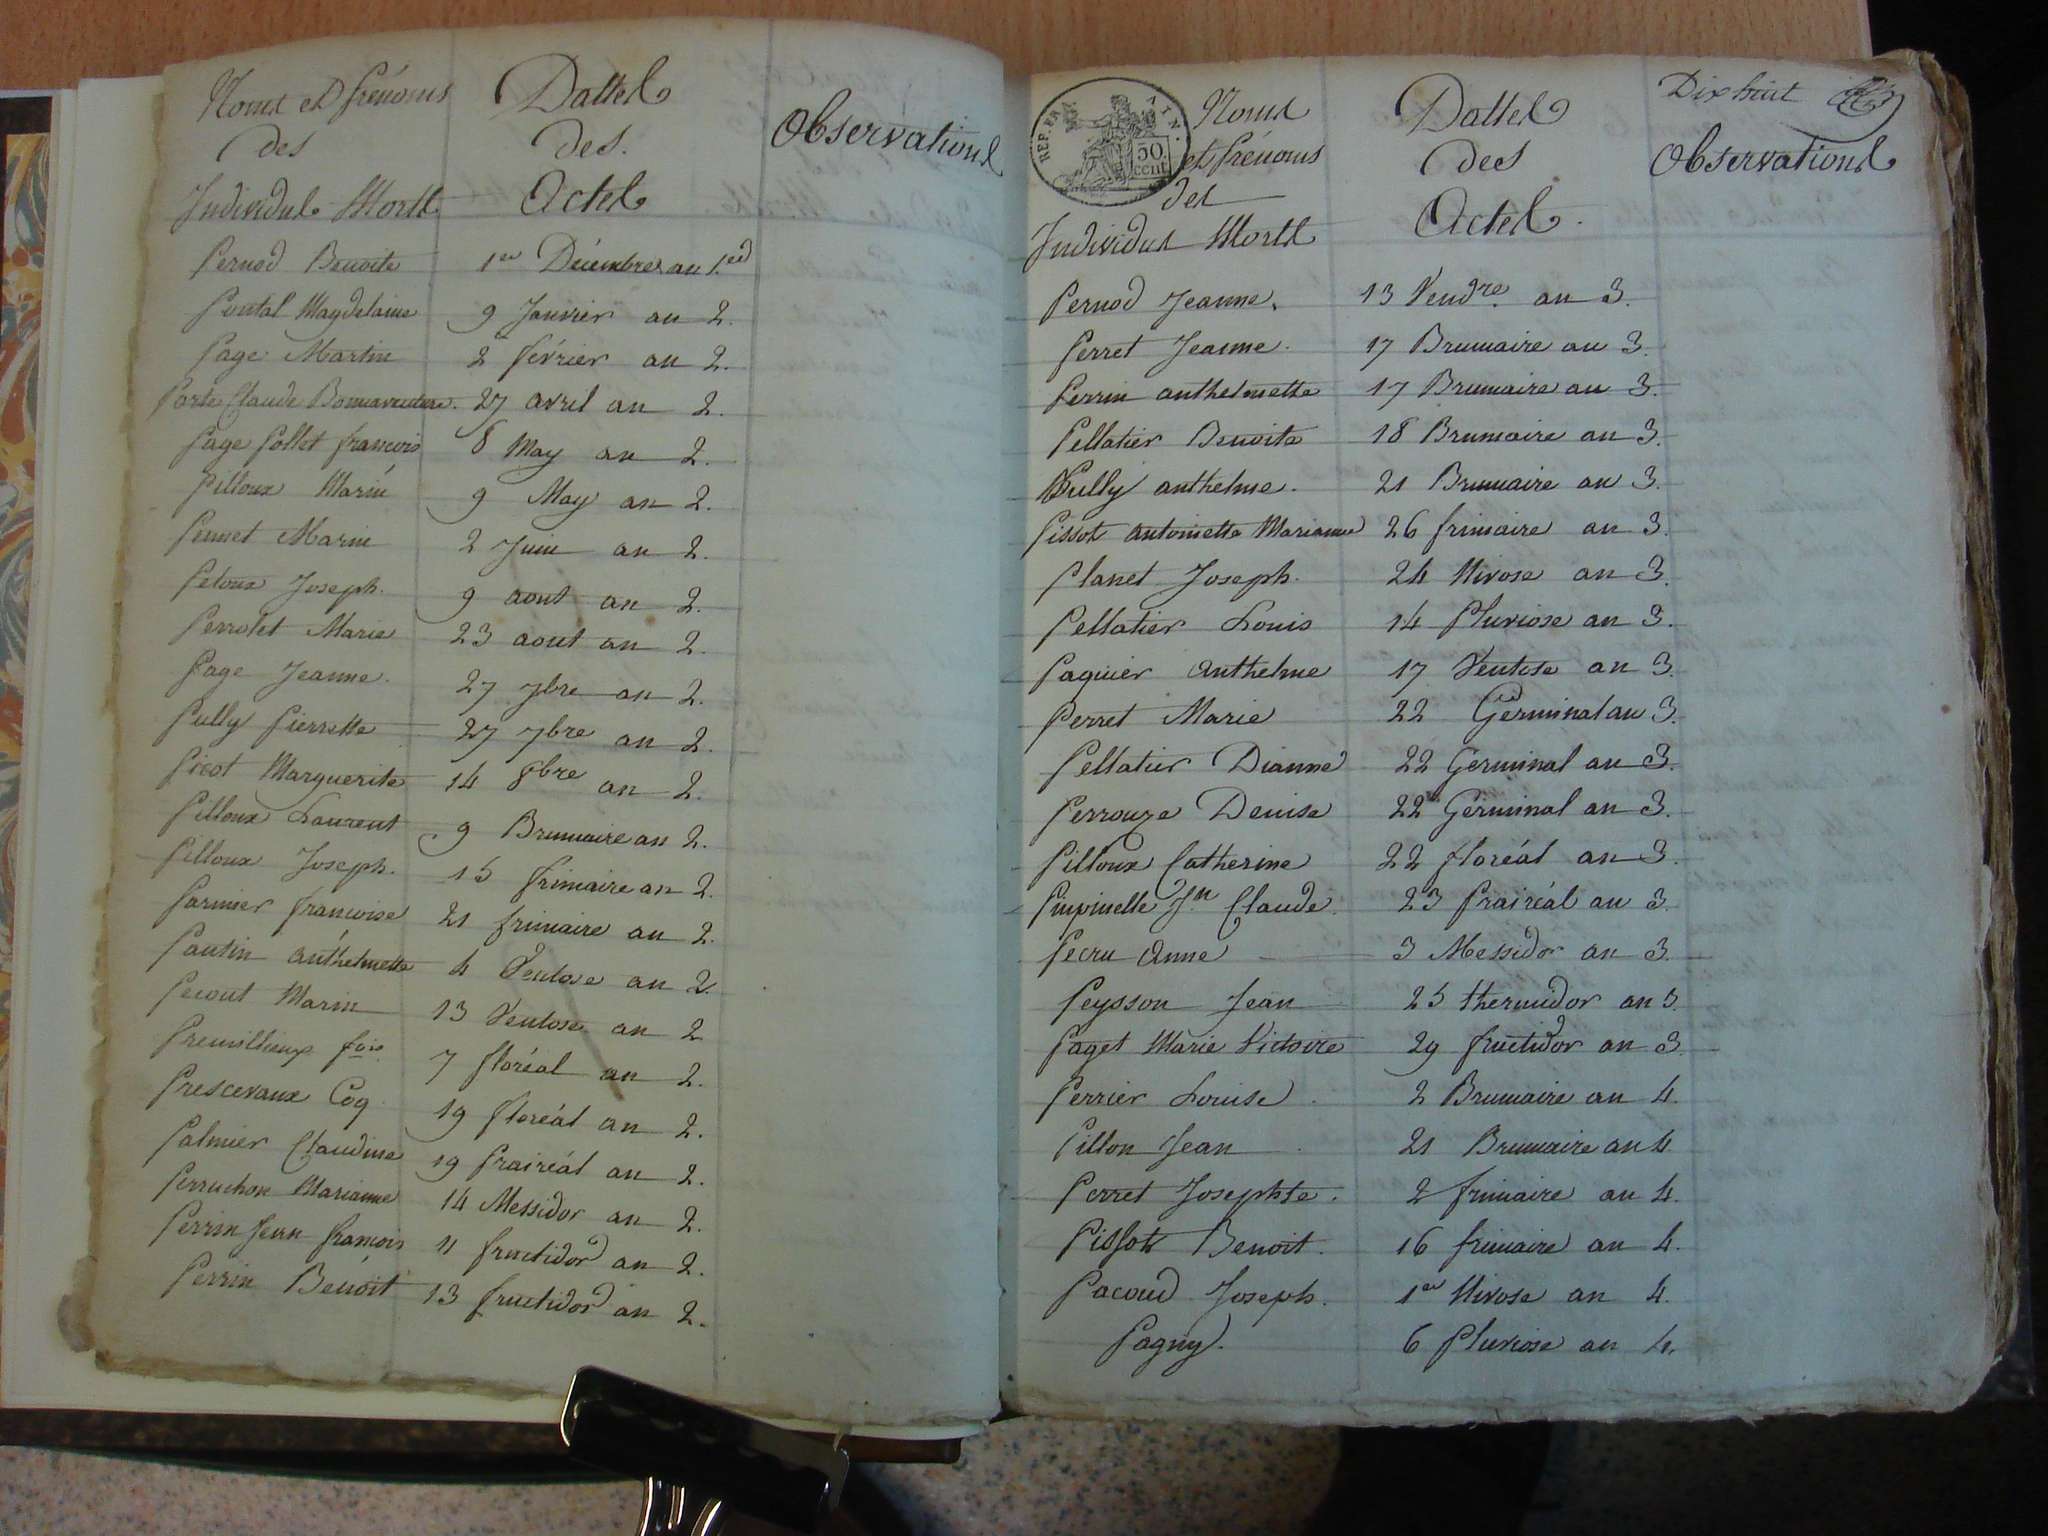 Noms et Prénoms
des
Individus Morts
Dattes
des
Actes
Observations
Pernod Benoite 1er Décembre an 1er
Pontal Magdelaine 9 Janvier an 2.
Page Martin 2 février an 2.
Porte Claude Bonnaventure. 27 avril an 2.
Page Pollet francois 8 May an 2.
Pilloux Marie 9 May an 2.
Pennet Marie 2 Juin an 2.
Petoux Joseph. 9 aout an 2.
Perrolet Marie 23 aout an 2.
Page Jeanne. 27 7bre an 2.
Pully Pierrette 27 7bre an 2.
Picot Marguerite 14 8bre an 2.
Pilloux Laurent 9 Brumaire an 2.
Pilloux Joseph. 15 frimaire an 2.
Parinier francoise 21 frimaire an 2.
Pautin anthelmette 4 Ventose an 2.
Pecout Marin 13 Ventose an 2
Premillieux fois 7 floréal an 2.
Prescevaux Coq 19 floréal an 2.
Palmier Claudine 19 Prairéal an 2.
Perruchon Marianne 14 Messidor an 2.
Perrin Jean francois 11 fructidor an 2.
Perrin Benoit 13 fructidor an 2.
REP. FRA
50.
cent.
Noms
et Prénoms
des
Individus Morts
Dattes
des
Actes.
Dix huit
Observations
Pernod Jeanne. 13 Vendre. an 3.
Perret Jeanne. 17 Brumaire an 3.
Perrin anthelmette 17 Brumaire an 3.
Pellatier Benoite 18 Brumaire an 3.
Pully anthelme. 21 Brumaire an 3.
Pissot antoinette Marianne 26 frimaire an 3.
Planet Joseph. 24 Nivose an 3.
Pellatier Louis 14 Pluviose an 3.
Paquier anthelme 17 Ventose an 3.
Perret Marie 22 Germinal an 3.
Pellatier Dianne 22 Germinal an 3.
Perrouze Denise 22 Germinal an 3.
Pilloux Catherine 22 floréal an 3.
Pimpinelle Jn Claude. 23 Prairéal an 3.
Pecru Anne 3 Messidor an 3.
Peysson Jean 25 thermidor an 3.
Paget Marie Victoire 29 fructidor an 3
Perrier Louise. 2 Brumaire an 4.
Pillon Jean 21 Brumaire an 4.
Perret Josephte. 2 frimaire an 4.
Pissot Benoit. 16 frimaire an 4.
Pacoud Joseph. 1er Nivose an 4.
Pagny. 6 Pluviose an 4.